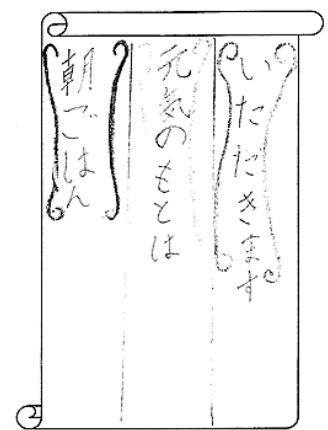 いただきます
元気のもとは
朝ごはん